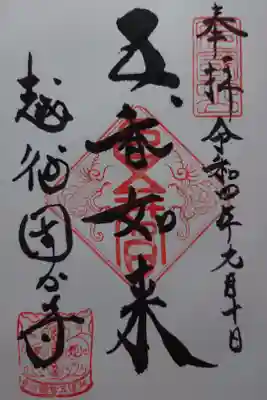 奉拝 令和四年九月十日
五智如来
越後国分寺